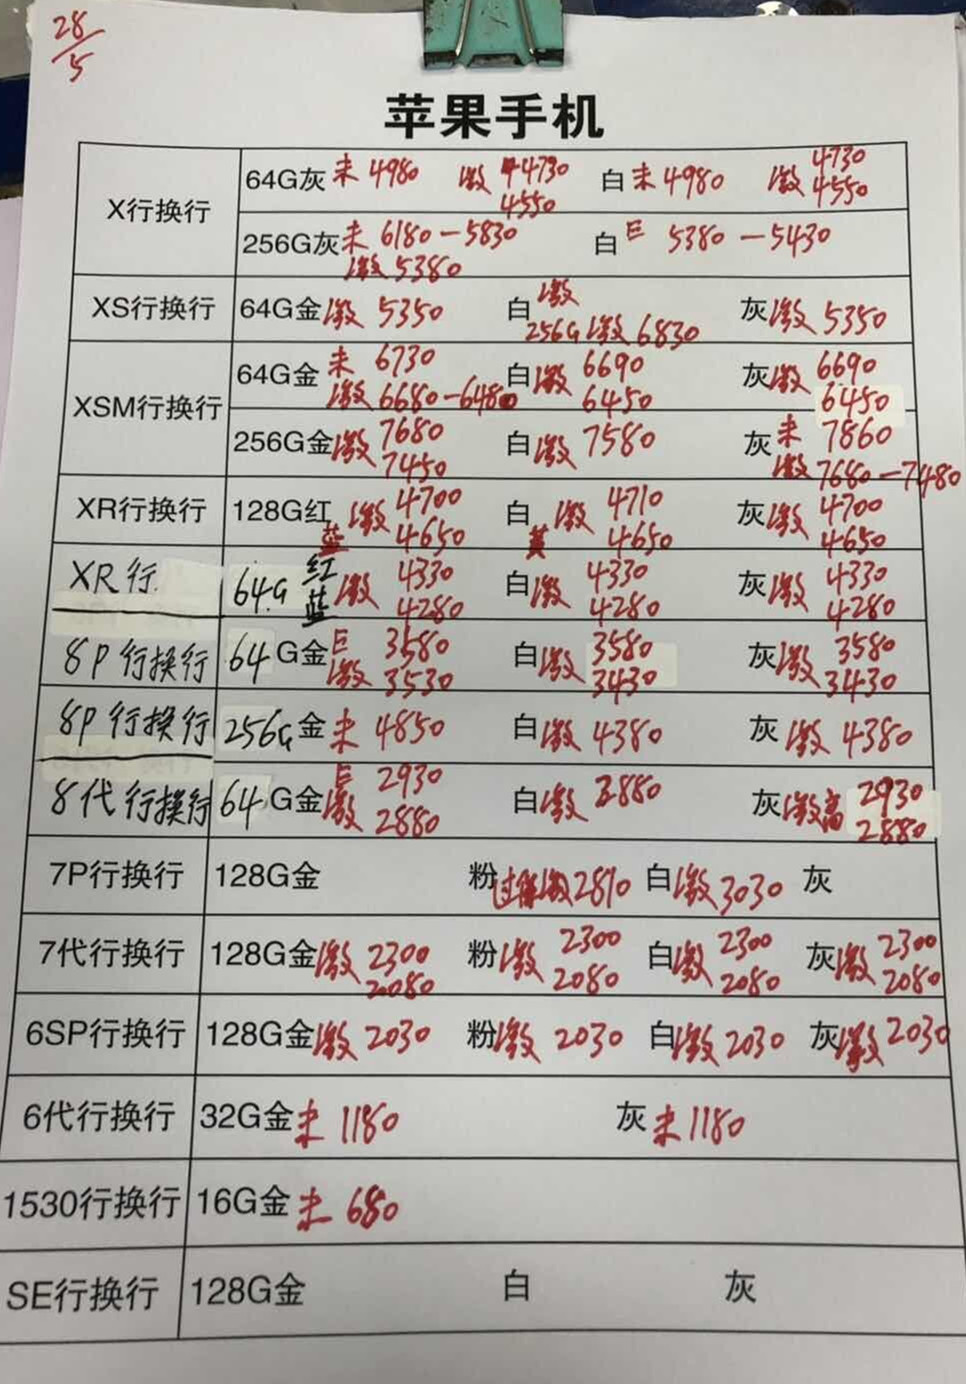 28/5
苹果手机
X行换行 64G灰 未 4980 激 4730 4550 白 未 4980 激 4730 4550
256G灰 未 6180-5830 激 5380 白 5380-5430
XS行换行 64G金 激 5350 白 激 256G 激 6830 灰 激 5350
XSM行换行 64G金 未 6730 激 6680-6480 白 激 6690 6450 灰 激 6690 6450
256G金 激 7680 7450 白 激 7580 灰 未 7860 激 7680-7480
XR行换行 128G红 蓝 激 4700 4650 白 黄 激 4710 4650 灰 激 4700 4650
XR行 64G 红 蓝 激 4330 4280 白 激 4330 4280 灰 激 4330 4280
8P行换行 64G金 3580 激 3530 白 激 3580 3430 灰 激 3580 3430
8P行换行 256G金 未 4850 白 激 4380 灰 激 4380
8代行换行 64G金 2930 激 2880 白 激 2880 灰 激高 2930 2880
7P行换行 128G金 粉 激 2810 白 激 3030 灰
7代行换行 128G金 激 2300 2080 粉 激 2300 2080 白 激 2300 2080 灰 激 2300 2080
6SP行换行 128G金 激 2030 粉 激 2030 白 激 2030 灰 激 2030
6代行换行 32G金 未 1180 灰 未 1180
1530行换行 16G金 未 680
SE行换行 128G金 白 灰